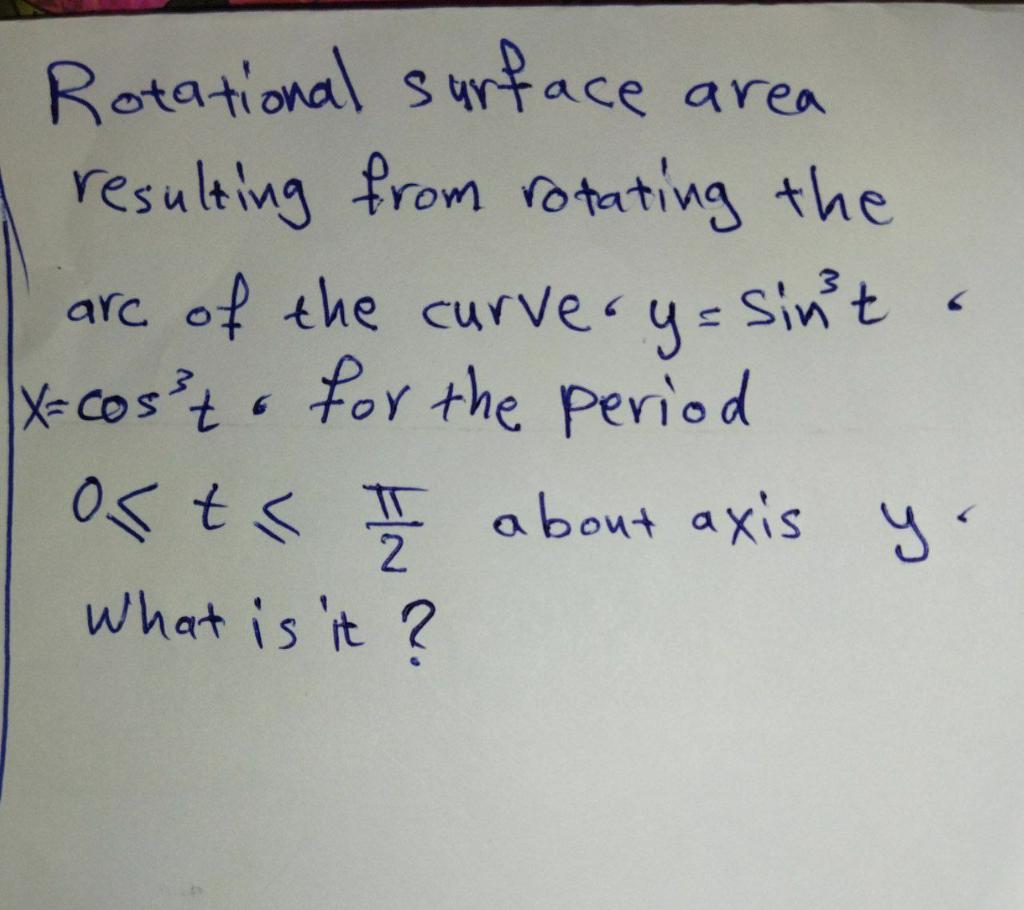 Rotational surface area
resulting from rotating the
arc of the curve، y = Sin³t ،
X=cos³t ، for the period
0≤ t ≤ π/2 about axis y،
What is it ?